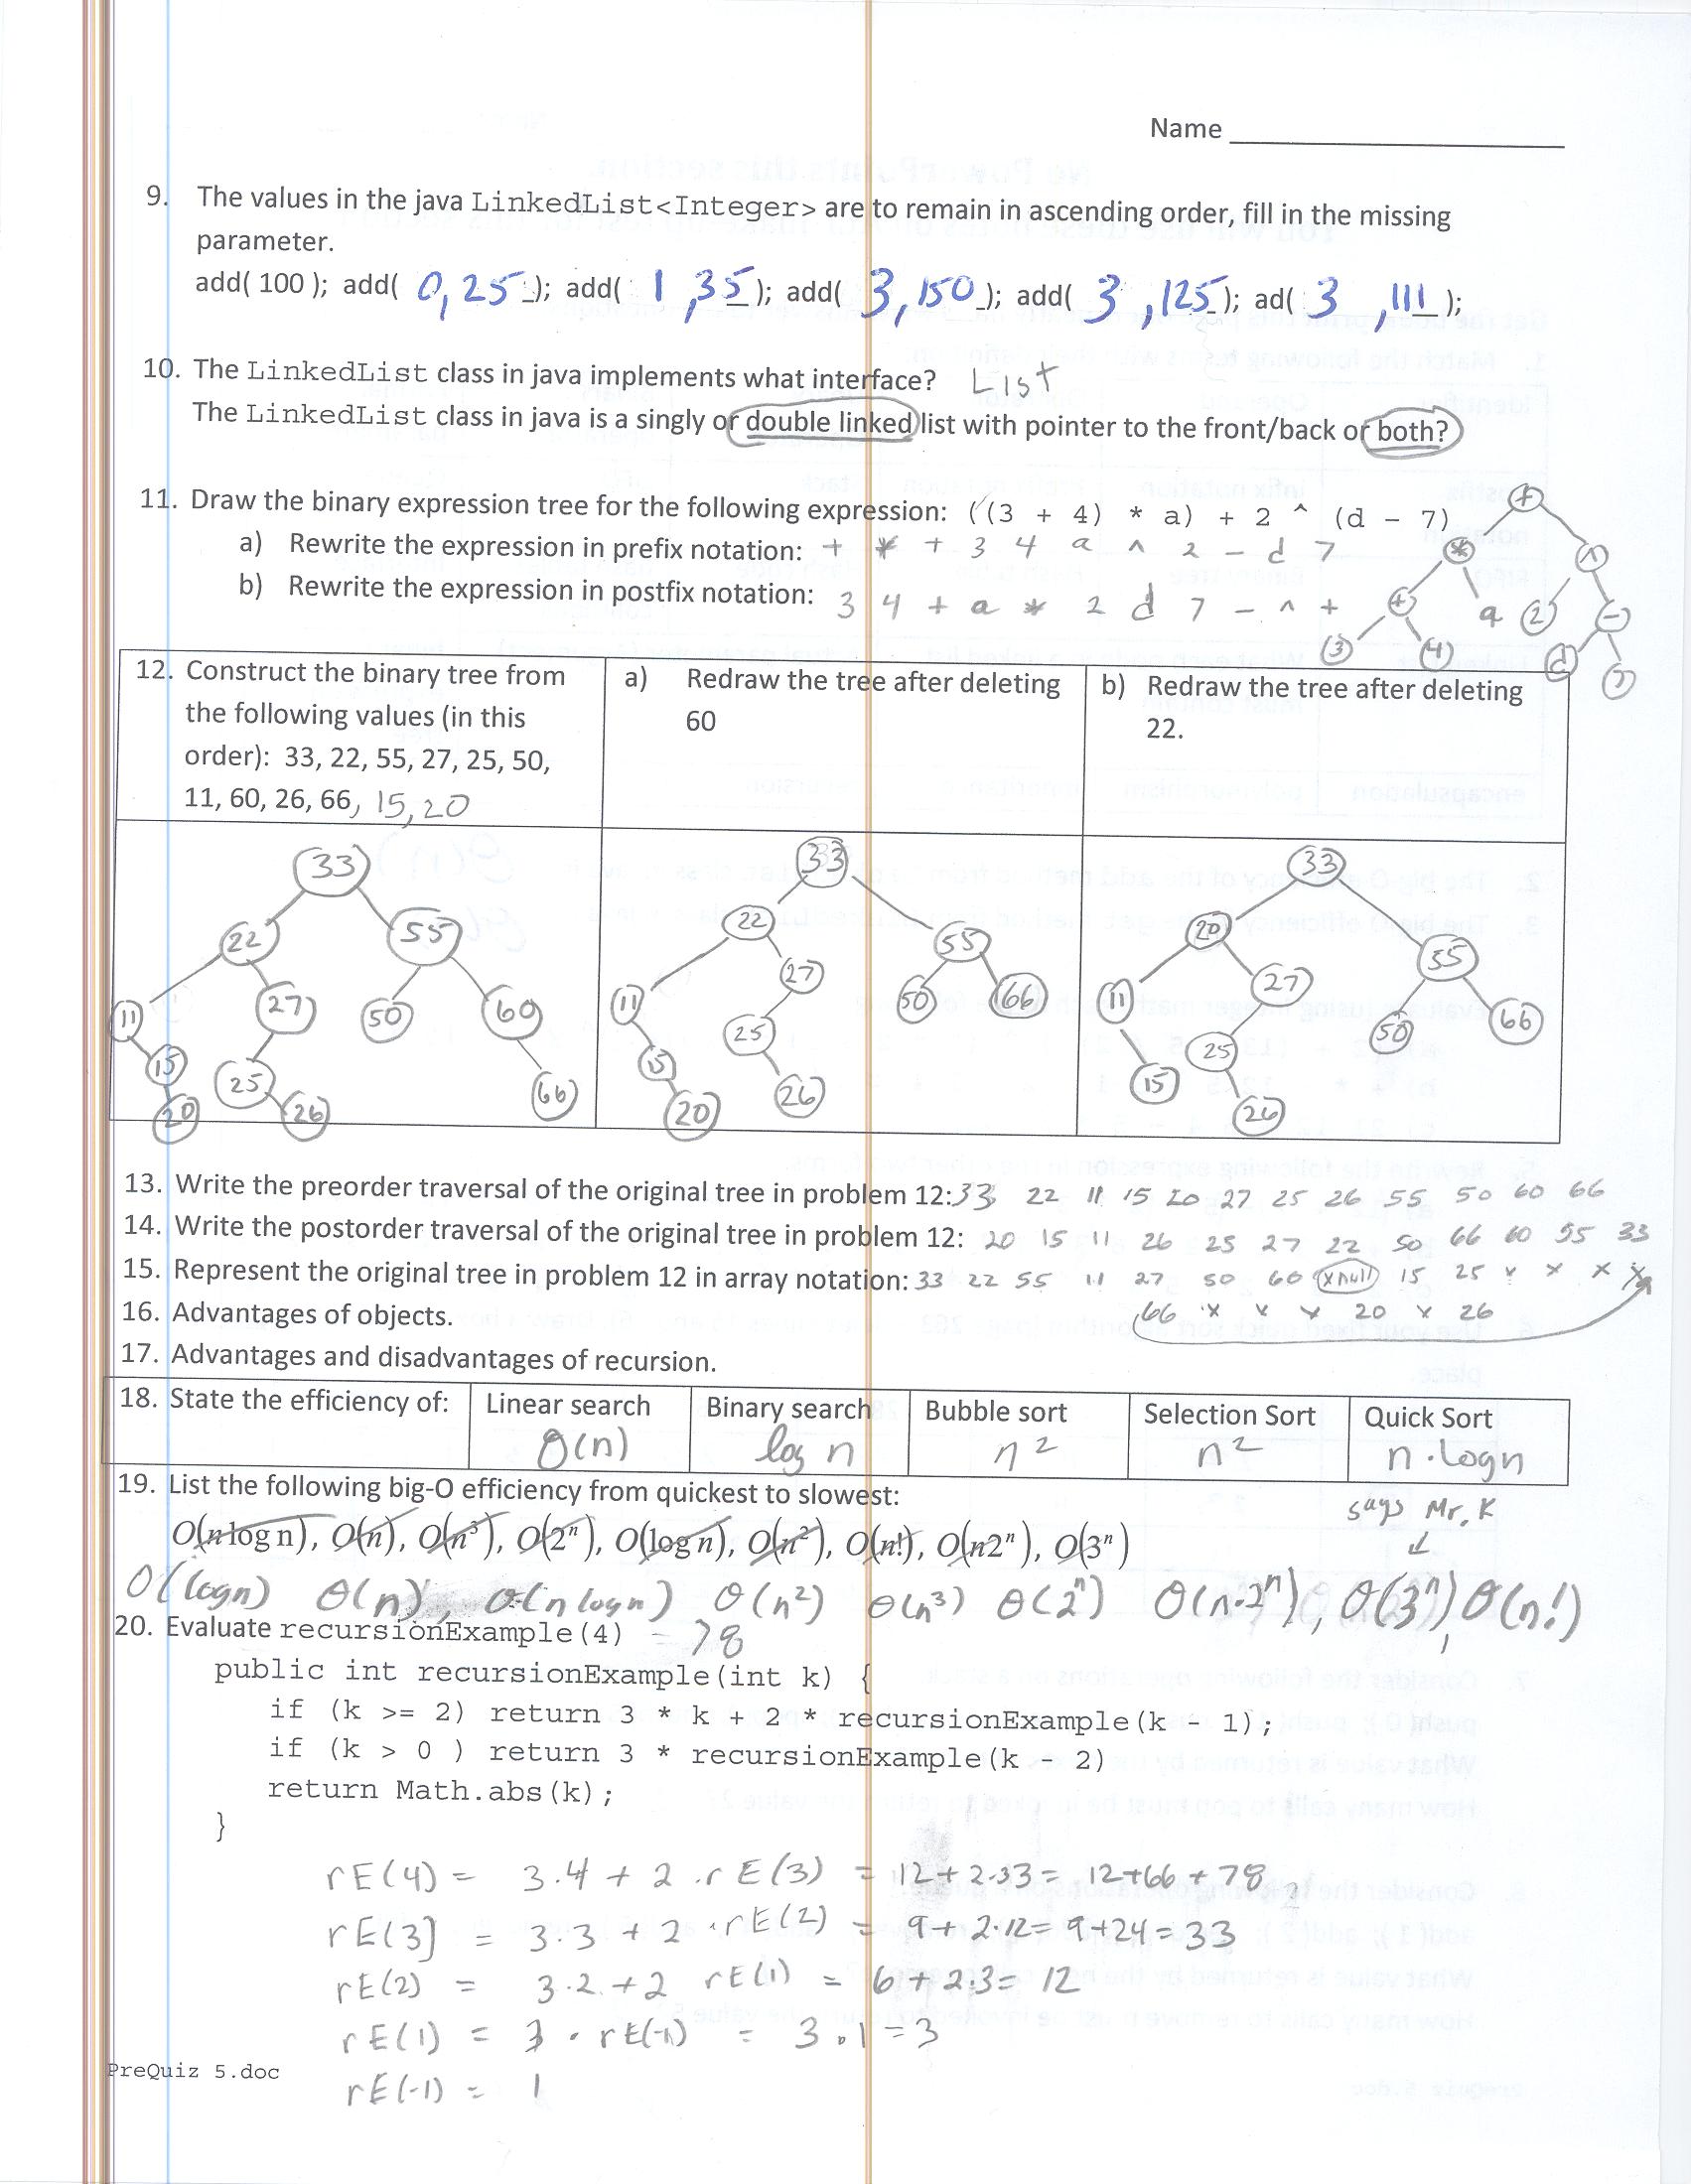 Name
9. The values in the java LinkedList<Integer> are to remain in ascending order, fill in the missing
parameter.
add( 100 ); add( 0, 25 ); add( 1 , 35 ); add( 3, 150 ); add( 3 , 125 ); ad( 3 , 111 );
10. The LinkedList class in java implements what interface? List
The LinkedList class in java is a singly or double linked list with pointer to the front/back or both?
11. Draw the binary expression tree for the following expression: ((3 + 4) * a) + 2 ^ (d - 7)
a) Rewrite the expression in prefix notation: + * + 3 4 a ^ 2 - d 7
b) Rewrite the expression in postfix notation: 3 4 + a * 2 d 7 - ^ +
+
* ^
+ a 2 -
3 4 d 7
12. Construct the binary tree from
the following values (in this
order): 33, 22, 55, 27, 25, 50,
11, 60, 26, 66, 15, 20
a) Redraw the tree after deleting
60
b) Redraw the tree after deleting
22.
33
22 55
11 27 50 60
15 25 66
20 26
33
22 55
11 27 50 66
15 25
20 26
33
20 55
11 27 50 66
15 25
26
13. Write the preorder traversal of the original tree in problem 12: 33 22 11 15 20 27 25 26 55 50 60 66
14. Write the postorder traversal of the original tree in problem 12: 20 15 11 26 25 27 22 50 66 60 55 33
15. Represent the original tree in problem 12 in array notation: 33 22 55 11 27 50 60 (x null) 15 25 x x x x
66 x x x 20 x 26
16. Advantages of objects.
17. Advantages and disadvantages of recursion.
18. State the efficiency of:
Linear search
O(n)
Binary search
log n
Bubble sort
n²
Selection Sort
n²
Quick Sort
n · log n
19. List the following big-O efficiency from quickest to slowest:
says Mr. K
O(n log n), O(n), O(n³), O(2ⁿ), O(log n), O(n²), O(n!), O(n2ⁿ), O(3ⁿ)
O(log n) O(n), O(n log n) O(n²) O(n³) O(2ⁿ) O(n·2ⁿ), O(3ⁿ), O(n!)
20. Evaluate recursionExample(4) = 78
public int recursionExample(int k) {
if (k >= 2) return 3 * k + 2 * recursionExample(k - 1);
if (k > 0 ) return 3 * recursionExample(k - 2)
return Math.abs(k);
}
rE(4) = 3.4 + 2 . rE(3) = 12 + 2.33 = 12+66 + 78
rE(3) = 3.3 + 2 . rE(2) = 9 + 2.12 = 9+24 = 33
rE(2) = 3.2 + 2 rE(1) = 6 + 2.3 = 12
rE(1) = 3 . rE(-1) = 3 . 1 = 3
rE(-1) = 1
PreQuiz 5.doc